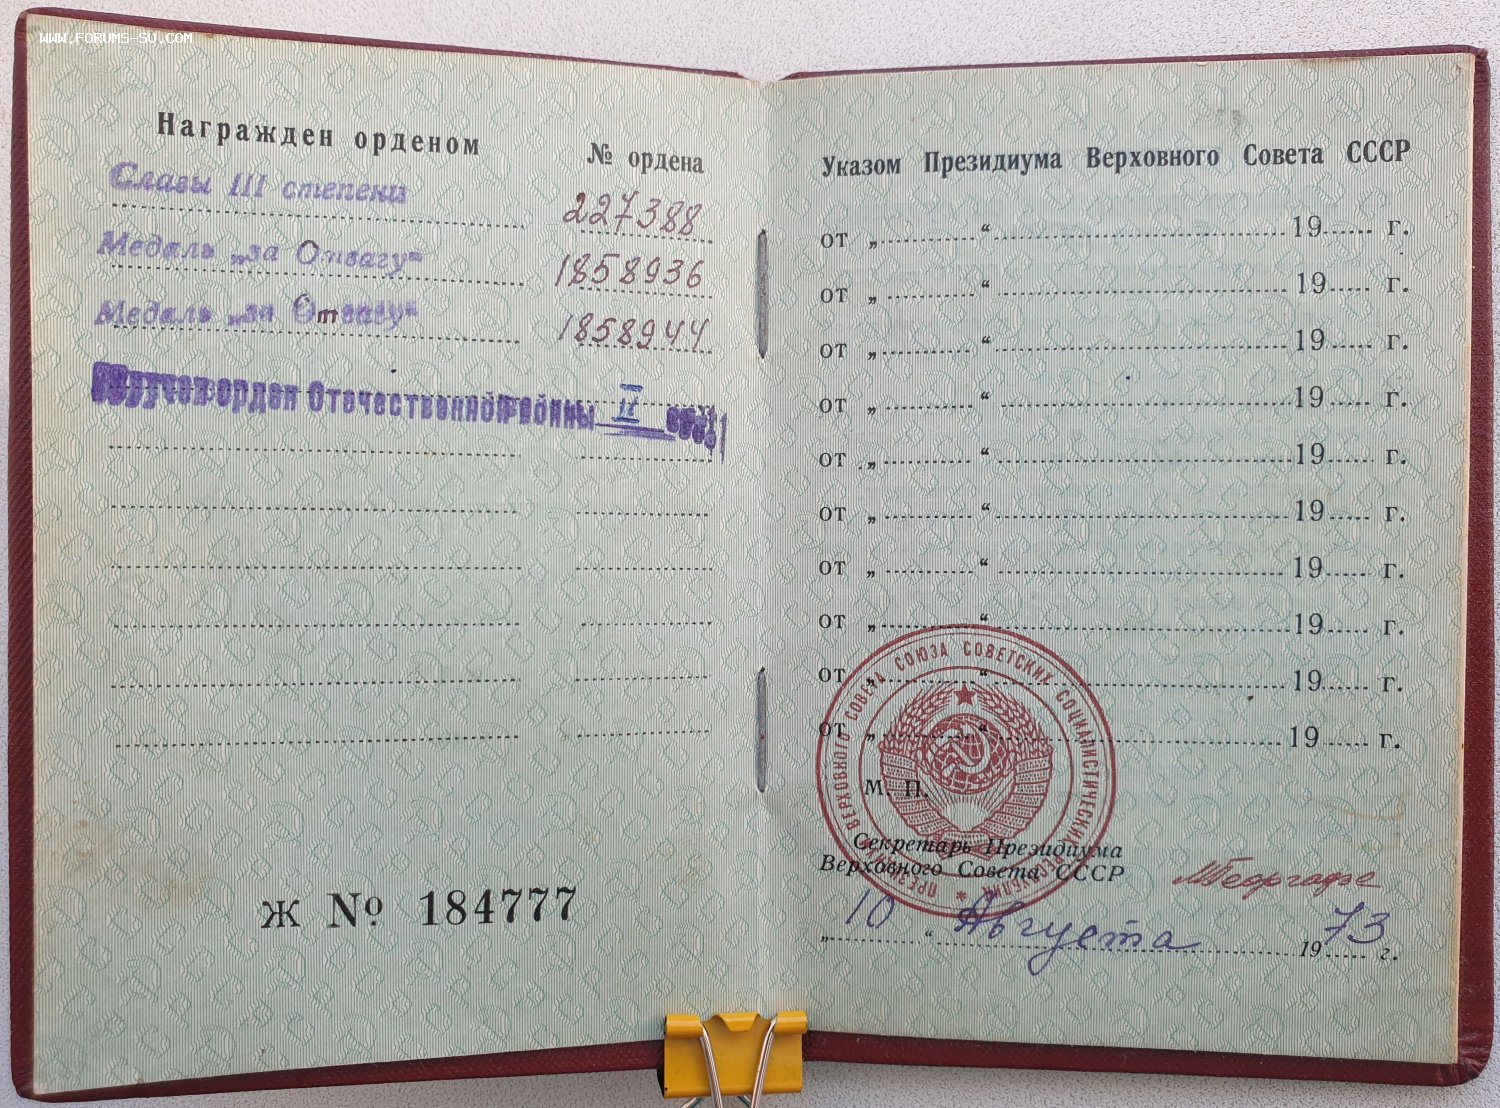 WWW.FORUMS-SU.COM
Награжден орденом
№ ордена
Славы III степени
227388
Медаль „за Отвагу“
1858936
Медаль „за Отвагу“
1858944
Вручен орден Отечественной войны II
Ж № 184777
Указом Президиума Верховного Совета СССР
от „ “ 19 г.
от „ “ 19 г.
от „ “ 19 г.
от „ “ 19 г.
от „ “ 19 г.
от „ “ 19 г.
от „ “ 19 г.
от „ “ 19 г.
от „ “ 19 г.
от „ “ 19 г.
ПРЕЗИДИУМ ВЕРХОВНОГО СОВЕТА СОЮЗА СОВЕТСКИХ СОЦИАЛИСТИЧЕСКИХ РЕСПУБЛИК
М. П.
Секретарь Президиума
Верховного Совета СССР
МГеоргадзе
„ 10 “ Августа 1973 г.